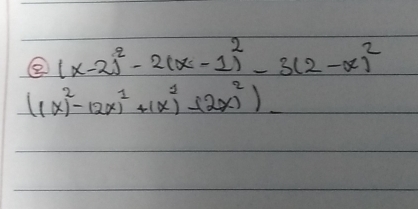 ② (x-2)² - 2(x-1)² - 3(2-x)²
((x)² - (2x)¹ + (x)¹ - (2x)²) -